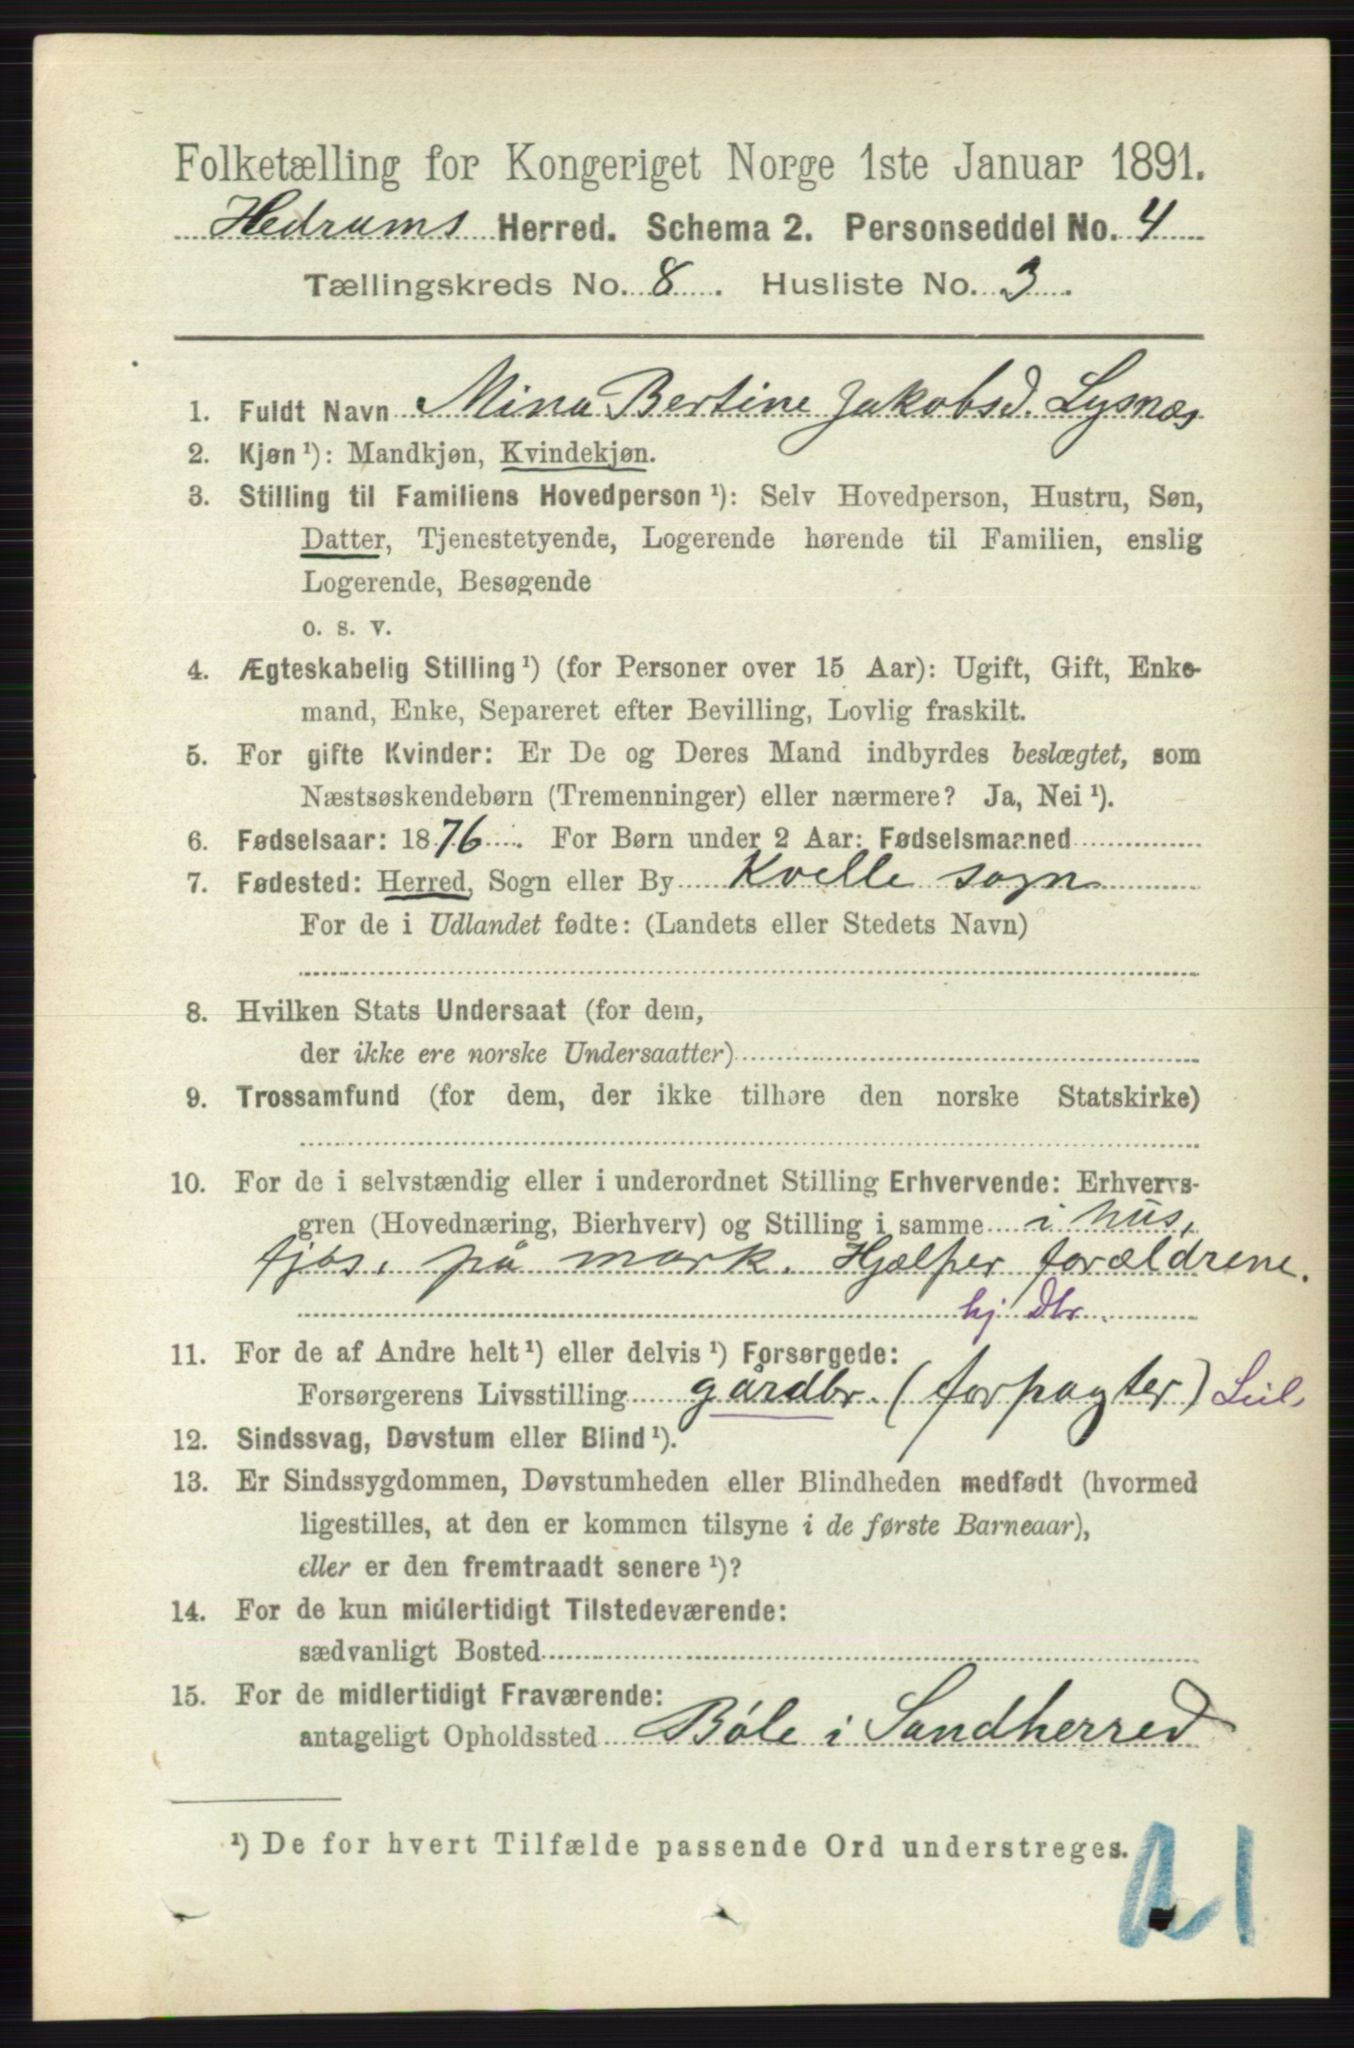 Folketælling for Kongeriget Norge 1ste Januar 1891.
Hedrums Herred. Schema 2. Personseddel No. 4
Tællingskreds No. 8. Husliste No. 3.
1. Fuldt Navn Mina Bertine Jakobsd. Lysnæs
2. Kjøn ¹): Mandkjøn, Kvindekjøn.
3. Stilling til Familiens Hovedperson ¹): Selv Hovedperson, Hustru, Søn,
Datter, Tjenestetyende, Logerende hørende til Familien, enslig
Logerende, Besøgende
o. s. v.
4. Ægteskabelig Stilling ¹) (for Personer over 15 Aar): Ugift, Gift, Enke-
mand, Enke, Separeret efter Bevilling, Lovlig fraskilt.
5. For gifte Kvinder: Er De og Deres Mand indbyrdes beslægtet, som
Næstsøskendebørn (Tremenninger) eller nærmere? Ja, Nei ¹).
6. Fødselsaar: 1876. For Børn under 2 Aar: Fødselsmaaned
7. Fødested: Herred, Sogn eller By Kvelle sogn
For de i Udlandet fødte: (Landets eller Stedets Navn)
8. Hvilken Stats Undersaat (for dem,
der ikke ere norske Undersaatter)
9. Trossamfund (for dem, der ikke tilhøre den norske Statskirke)
10. For de i selvstændig eller i underordnet Stilling Erhvervende: Erhvervs-
gren (Hovednæring, Bierhverv) og Stilling i samme i hus,
fjøs, på mark. Hjælper forældrene.
hj Dtr.
11. For de af Andre helt ¹) eller delvis ¹) Forsørgede:
Forsørgerens Livsstilling gårdbr. (forpagter) Leil.
12. Sindssvag, Døvstum eller Blind ¹).
13. Er Sindssygdommen, Døvstumheden eller Blindheden medfødt (hvormed
ligestilles, at den er kommen tilsyne i de første Barneaar),
eller er den fremtraadt senere ¹)?
14. For de kun midlertidigt Tilstedeværende:
sædvanligt Bosted
15. For de midlertidigt Fraværende:
antageligt Opholdssted Bøle i Sandherred
¹) De for hvert Tilfælde passende Ord understreges.